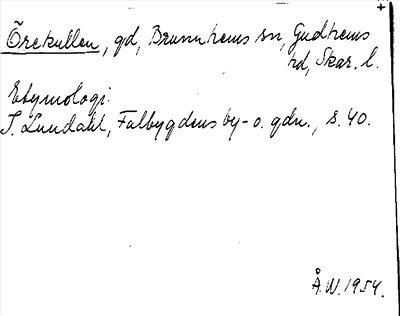 Örekullen, gd, Brunnhems sn, Gudhems
hd, Skar. l.
Etymologi:
I. Lundahl, Falbygdens by- o. gdn., s. 40.
Å.W. 1954.